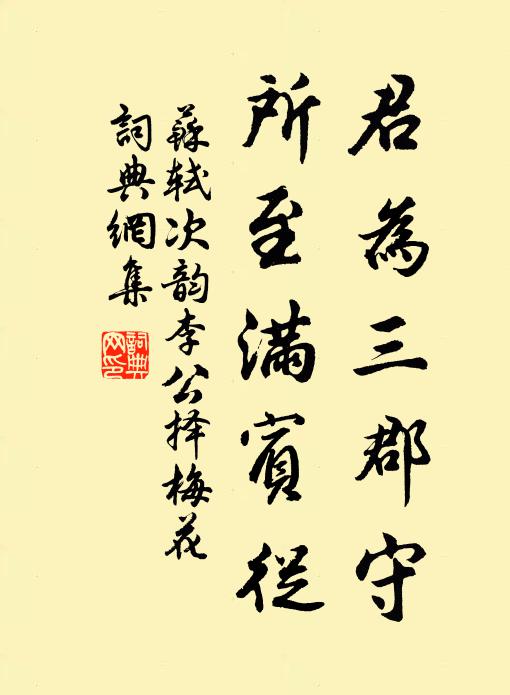 君為三郡守
所至滿賓從
蘇轼次韵李公择梅花
詞典網集
詞典
网印